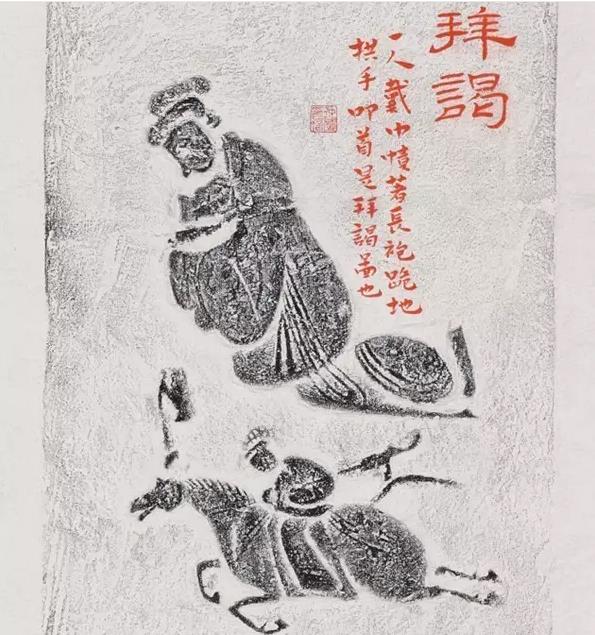 拜謁
一人戴巾幘著長袍跪地
拱手叩首是拜謁啚也